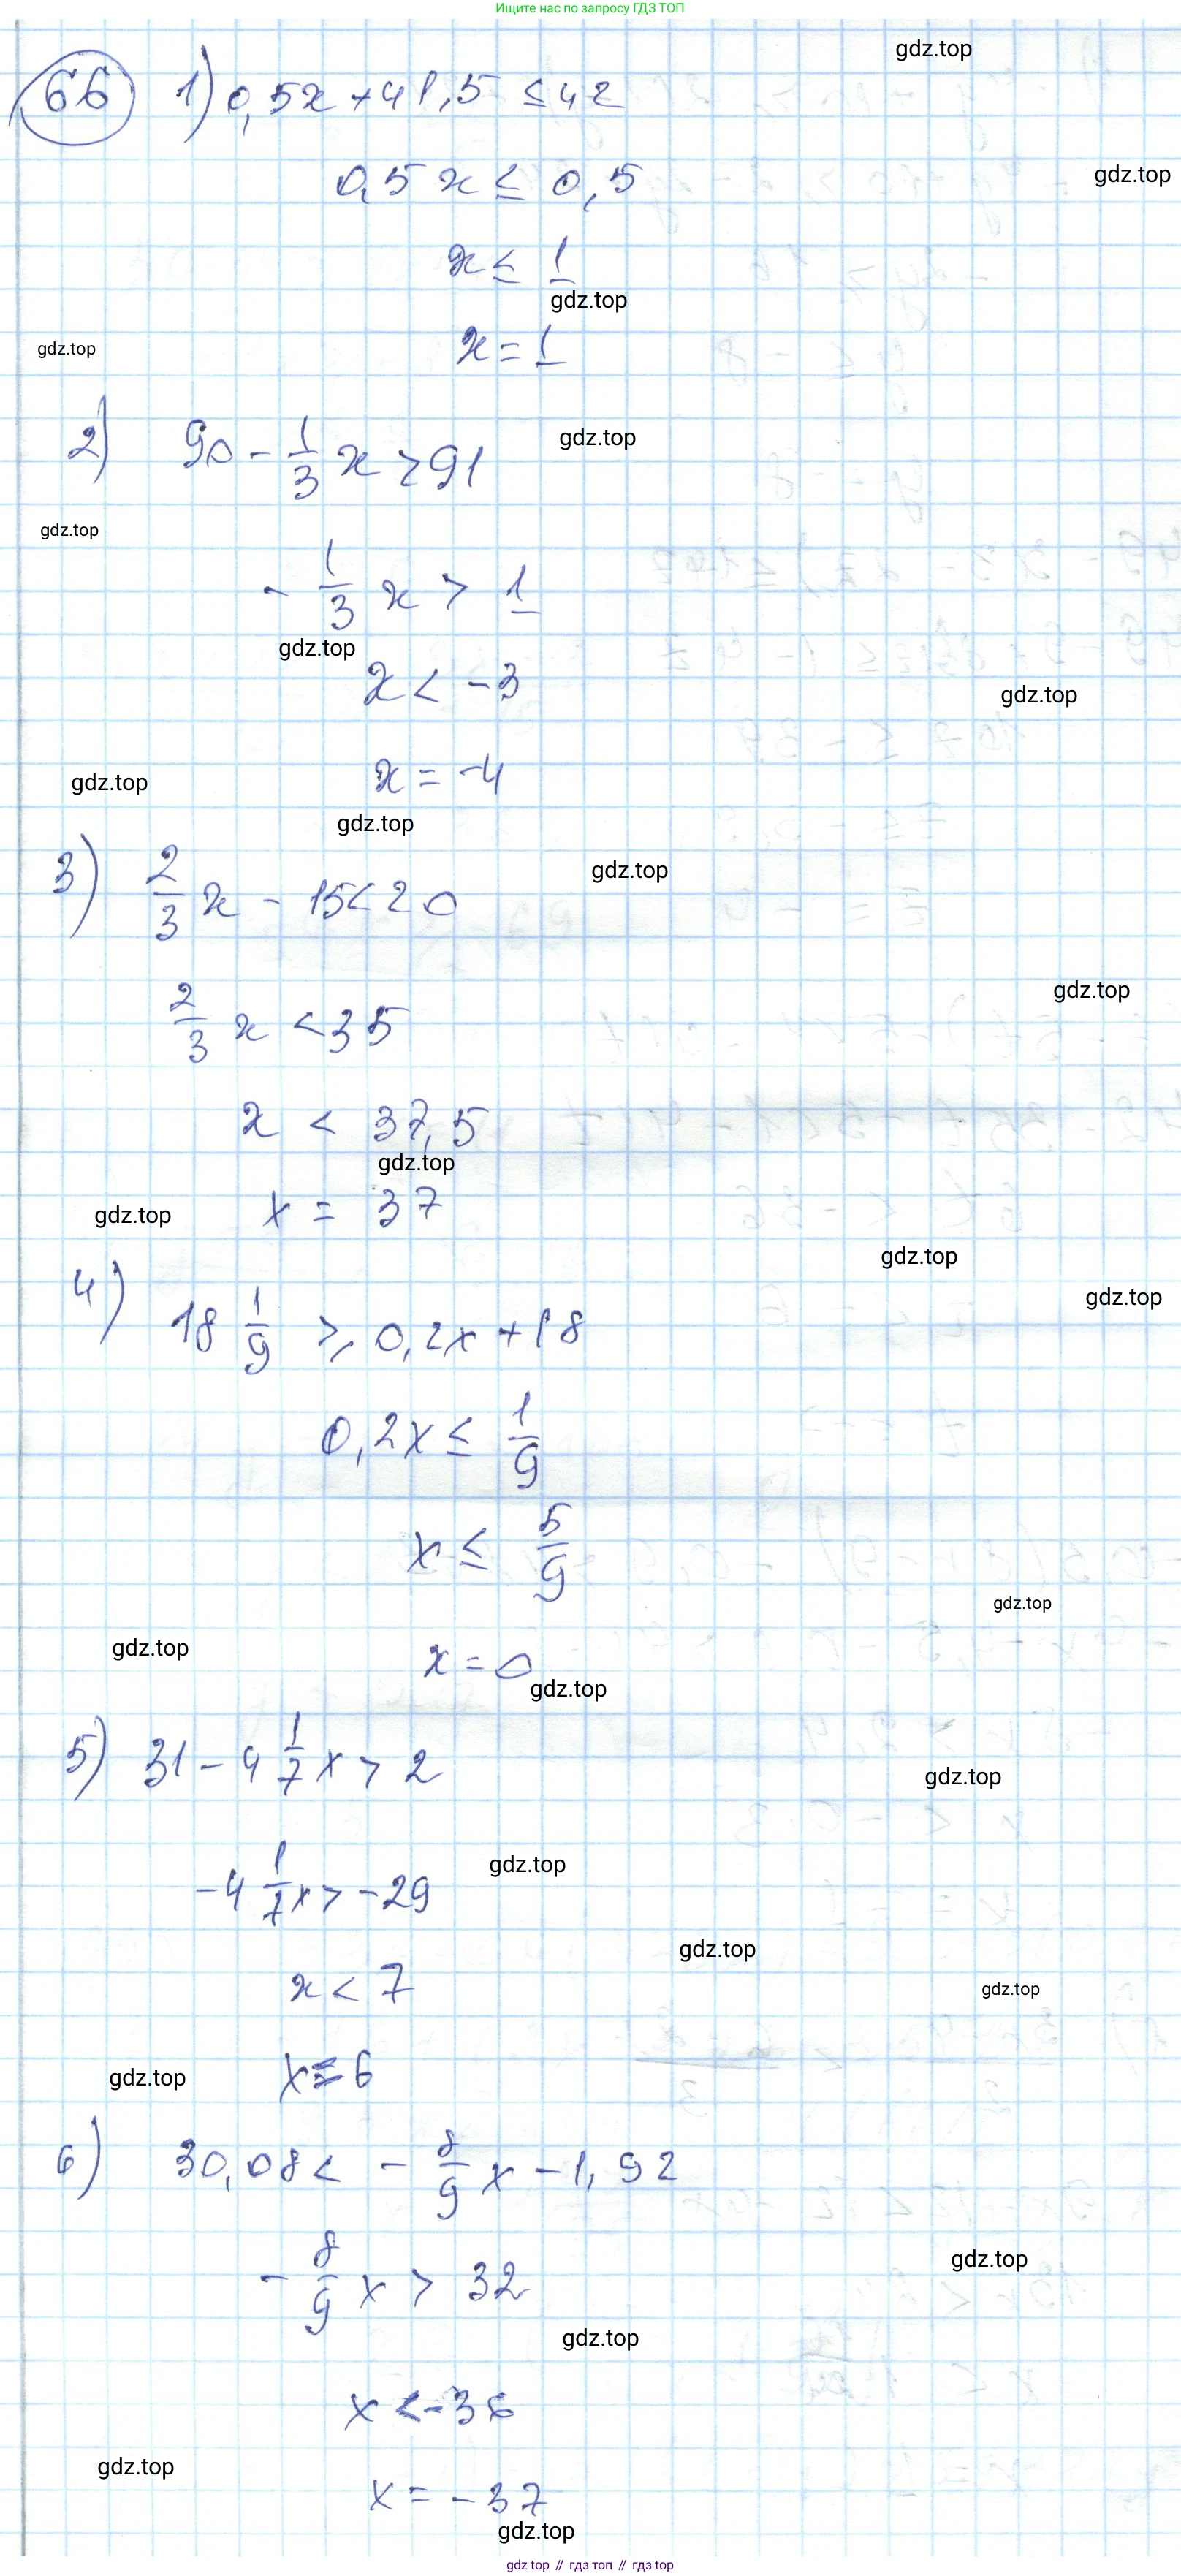 Ищите нас по запросу ГДЗ ТОП
gdz.top
66 1) 0,5x + 41,5 ≤ 42
gdz.top
0,5x ≤ 0,5
x ≤ 1
gdz.top
gdz.top
x = 1
2) 90 - 1/3 x > 91
gdz.top
gdz.top
- 1/3 x > 1
gdz.top
x < -3
gdz.top
x = -4
gdz.top
gdz.top
3) 2/3 x - 15 < 20
gdz.top
gdz.top
2/3 x < 35
x < 37,5
gdz.top
gdz.top
x = 37
gdz.top
4) 18 1/9 ≥ 0,2x + 18
gdz.top
0,2x ≤ 1/9
x ≤ 5/9
gdz.top
gdz.top
x = 0
gdz.top
5) 31 - 4 1/7 x > 2
gdz.top
-4 1/7 x > -29
gdz.top
gdz.top
x < 7
gdz.top
x = 6
gdz.top
6) 30,08 < - 8/9 x - 1,92
gdz.top
- 8/9 x > 32
gdz.top
x < -36
gdz.top
x = -37
gdz.top
gdz top // гдз топ // гдз top